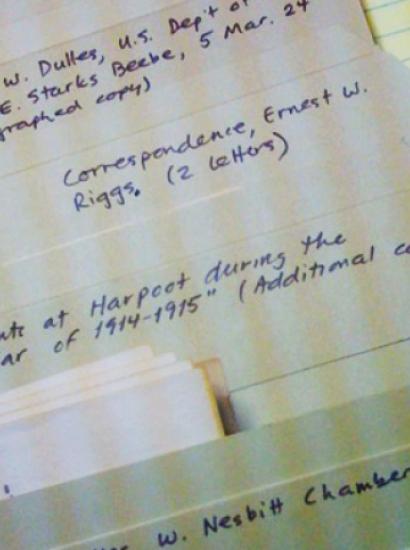 W. Dulles, U.S. Dep't of
E. Starks Beebe, 5 Mar. 24
graphed copy)
Correspondence, Ernest W.
Riggs. (2 letters)
nts at Harpoot during the
ar of 1914-1915" (Additional co
W. Nesbitt Chamber